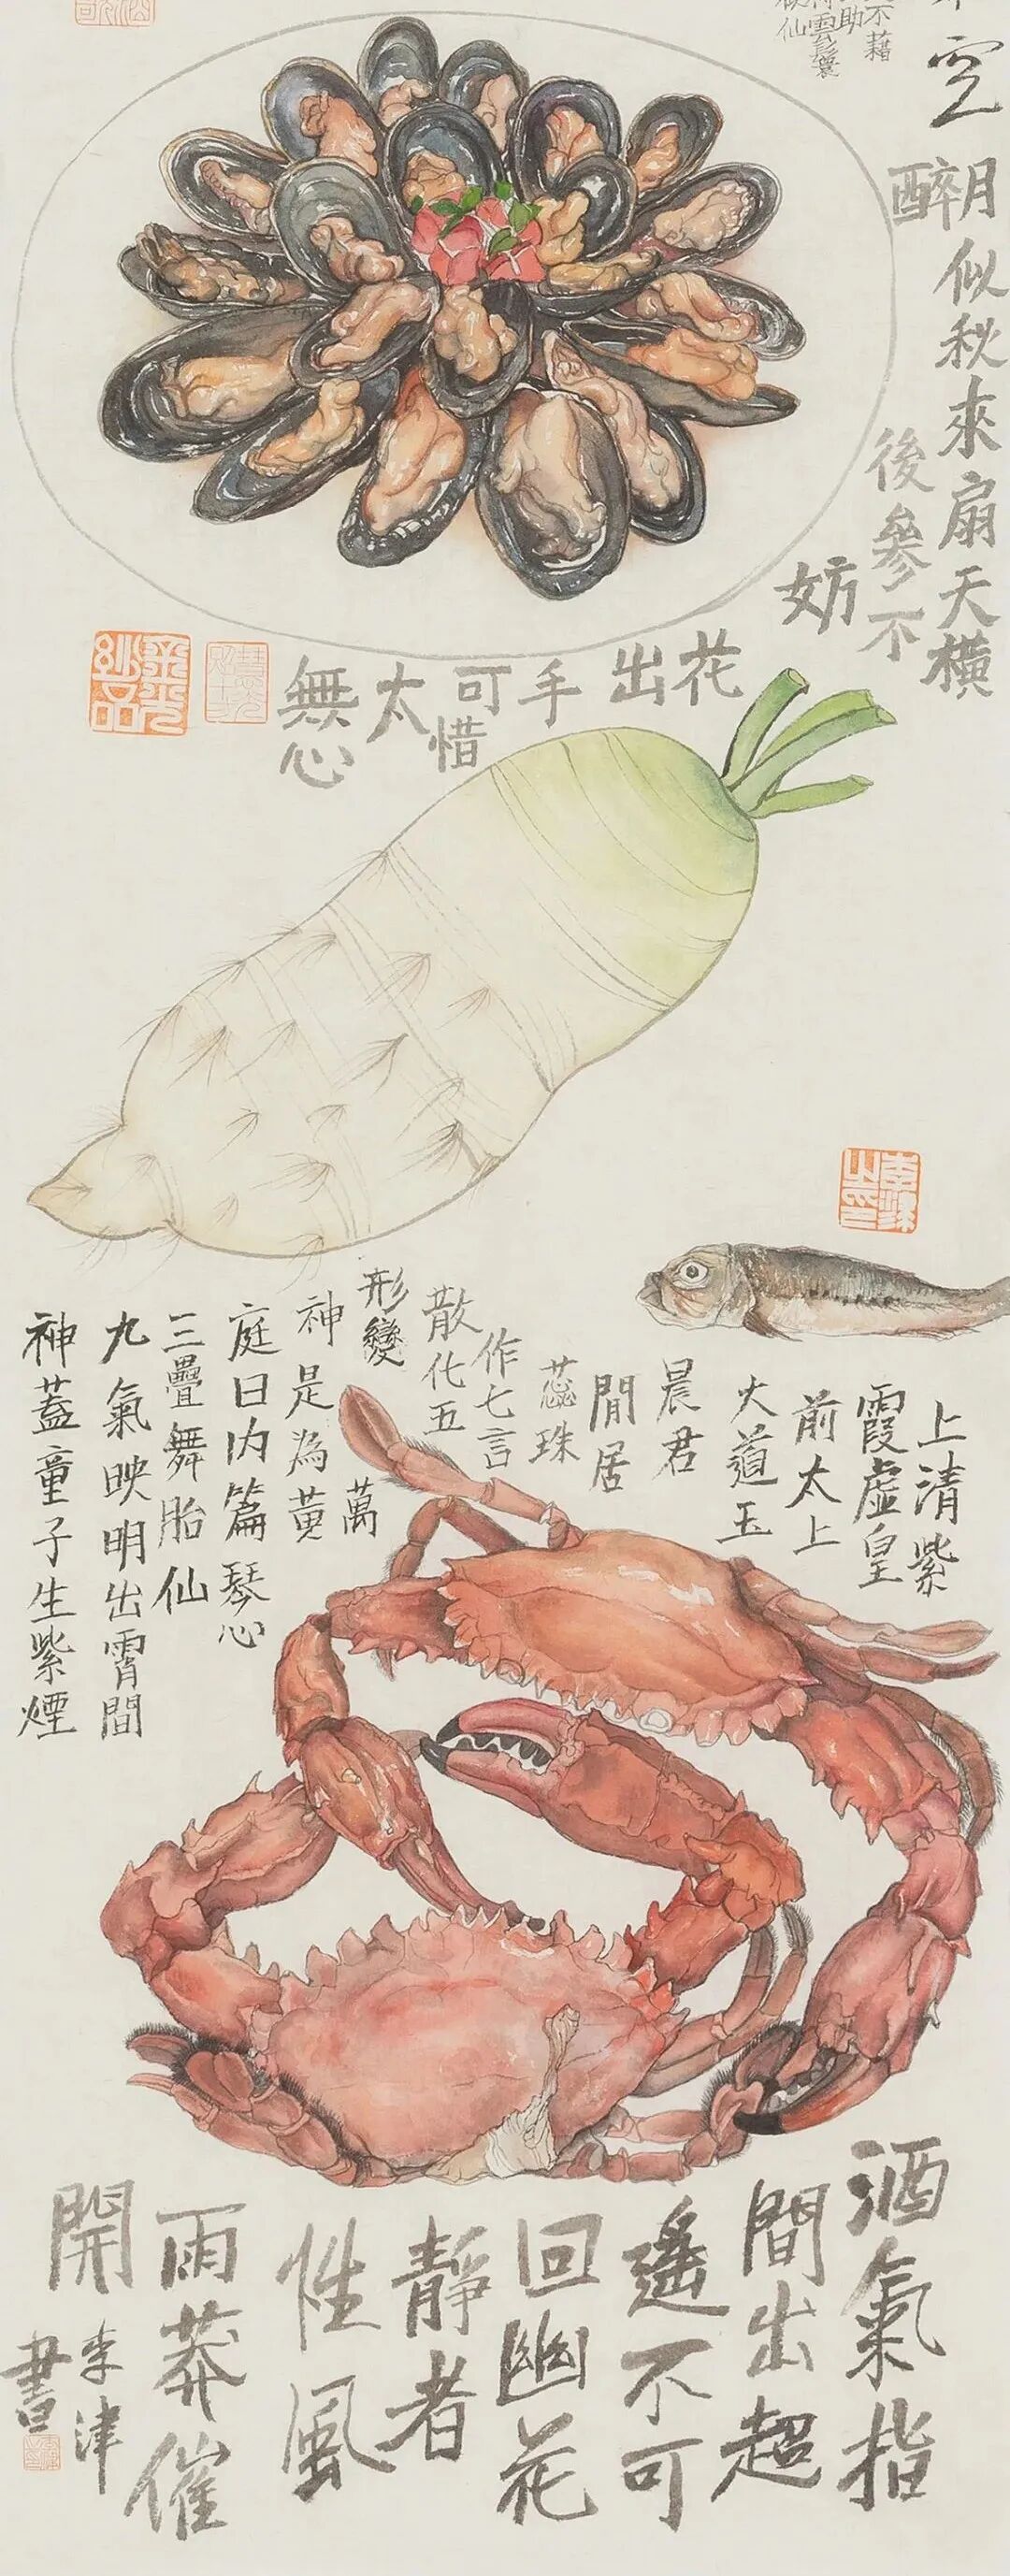 不藉
助
仙
空月似秋來扇天橫
醉後參不
妨
花
出
手
可惜
太
無心
李津之印
上清紫
霞虛皇
前太上
大道玉
晨君
閒居
蕊珠
作七言
散化五
形變
萬
神是為黃
庭曰內篇琴心
三疊舞胎仙
九氣映明出霄間
神蓋童子生紫煙
酒氣指
間出超
遙不可
回幽花
靜者
性風
雨莽催
開
李津
書